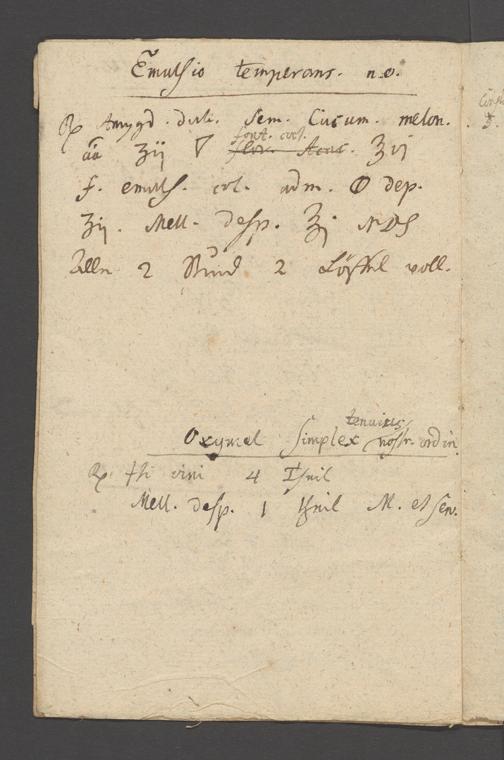 Emulsio temperans. n.o.
℞ Amygd. dulc. Sem. Cucum. melon.
font. cort.
āā ʒij ▽ flor. Acac. ℥vj
f. emuls. col. adm. 🜕 dep.
ʒij. Mell. desp. ℥j MDS
Alle 2 Stund 2 Löffel voll.
tenuius
Oxymel simplex nostr. ordin.
℞ vini 4 Theil
Mell. desp. 1 theil M. et serv.